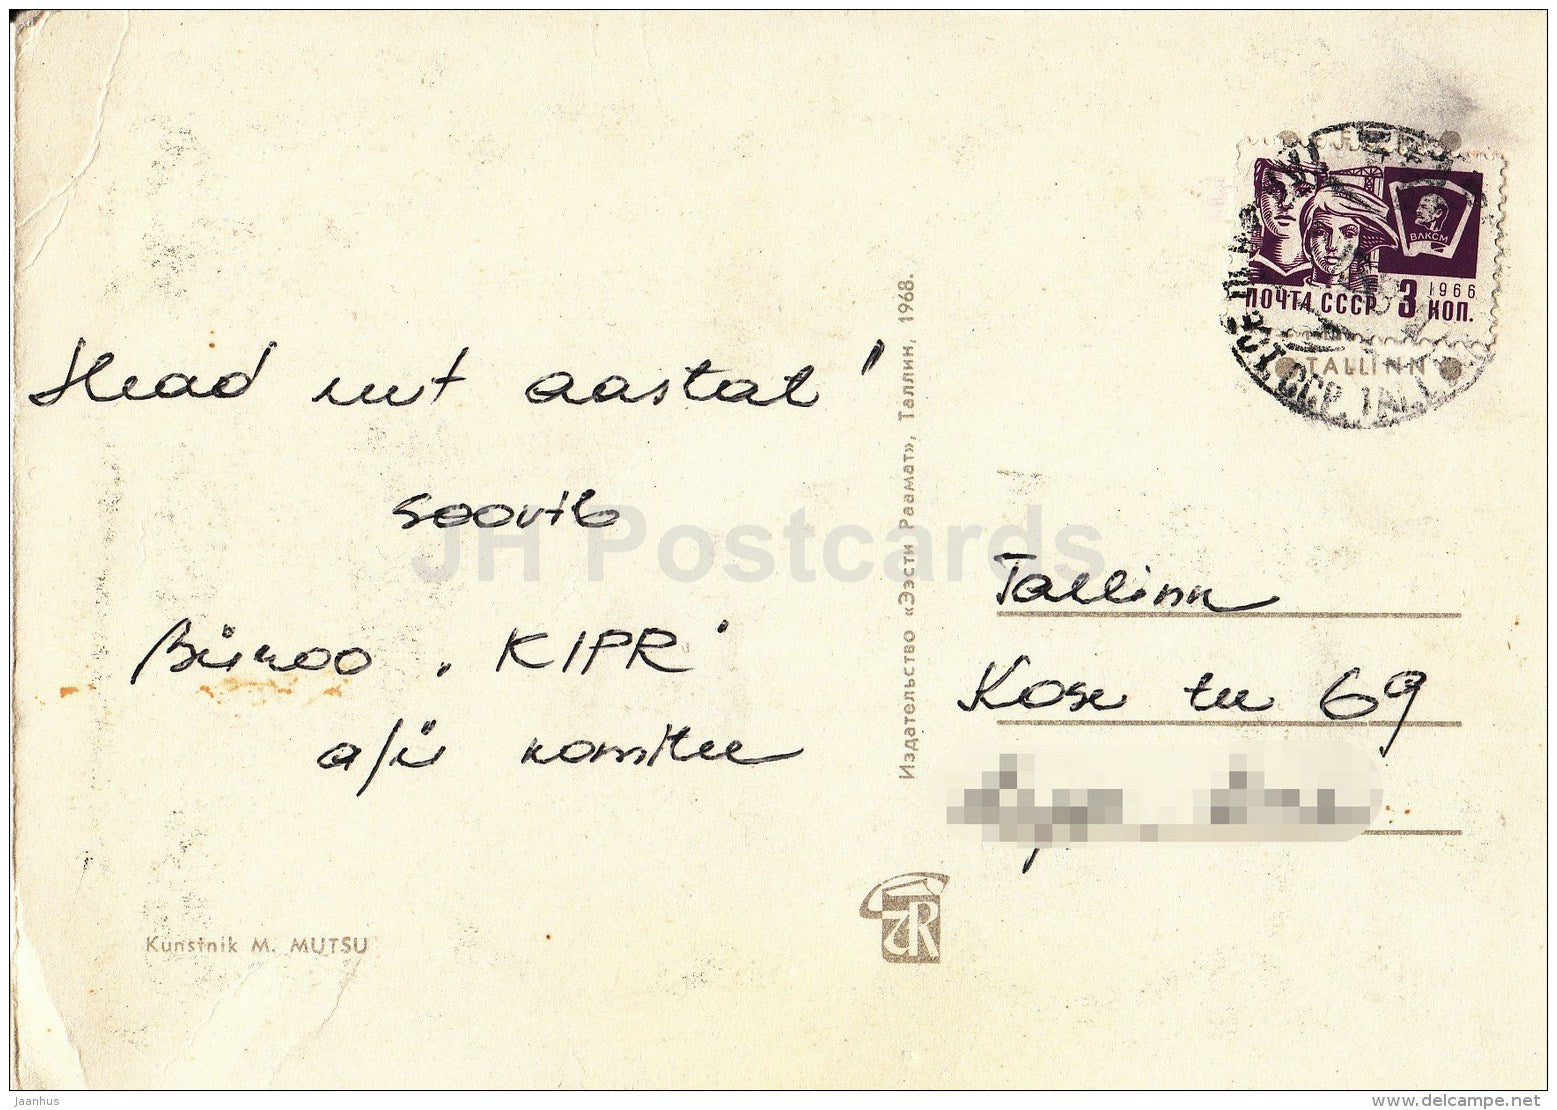 Head uut aastat!
soovib
Büroo "KIPR"
a/ü komitee
Kunstnik M. MUTSU
Издательство «Ээсти Раамат», Таллин, 1968.
ПОЧТА СССР 3 КОП.
1966
ВЛКСМ
TALLINN
Tallinn
Kose tee 69
JH Postcards
Jaanhus
delcampe.net